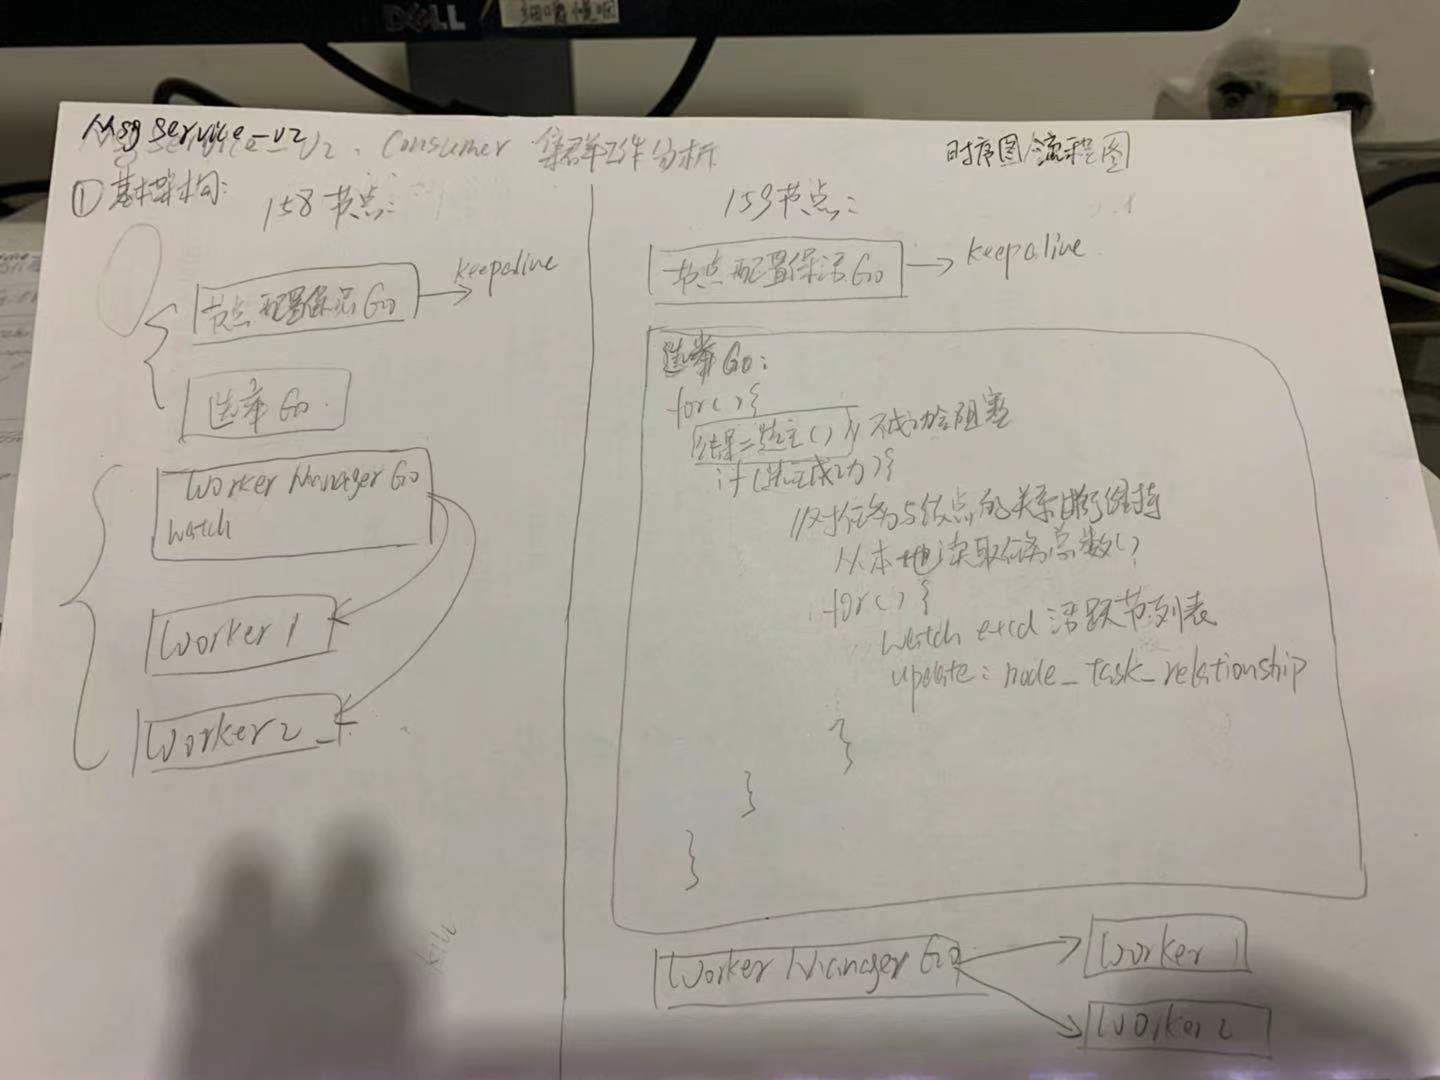 DELL
细嚼慢咽
Msg Service-v2
Service-V2、Consumer 集群工作分析
时序图/流程图
① 基本架构:
158节点:
节点配置保活Go
keepalive
选举Go
Worker Manager Go
watch
Worker 1
Worker 2
159节点:
节点配置保活Go
keepalive
选举Go:
for(){
结果=选主() // 不成功会阻塞
if(选主成功){
//对任务与节点的关系进行维持
从本地读取任务总数()
for(){
watch etcd 活跃节列表
update: node_task_relationship
}
}
}
Worker Manager Go
Worker 1
Worker 2